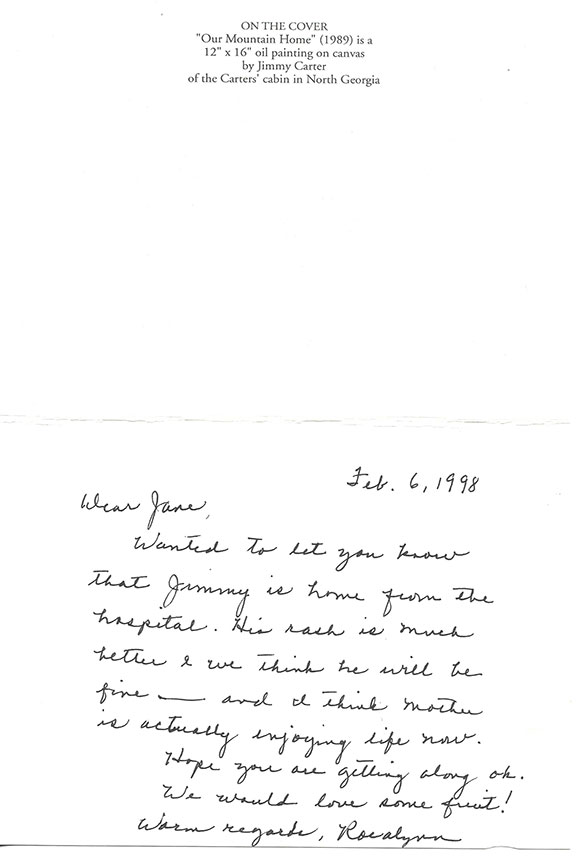 ON THE COVER
"Our Mountain Home" (1989) is a
12" x 16" oil painting on canvas
by Jimmy Carter
of the Carters' cabin in North Georgia
Feb. 6, 1998
Dear Jane,
Wanted to let you know
that Jimmy is home from the
hospital. His rash is much
better & we think he will be
fine — and I think Mother
is actually enjoying life now.
Hope you are getting along ok.
We would love some fruit!
Warm regards, Rosalynn